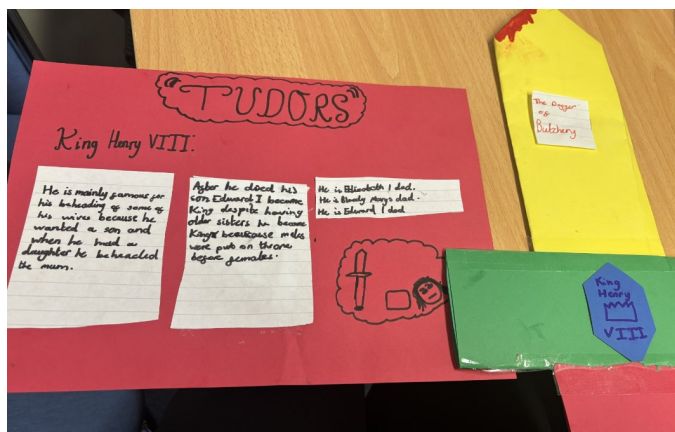 "TUDORS"
King Henry VIII:
He is mainly famous for
his beheading of some of
his wives because he
wanted a son and
when he had a
daughter he beheaded
the mum.
After he died his
son Edward I became
King despite having
older sisters he became
King because males
were put on throne
before females.
He is Elizabeth I dad.
He is Bloody Marys dad.
He is Edward I dad
The Dagger
of
Butchery
King
Henry
VIII